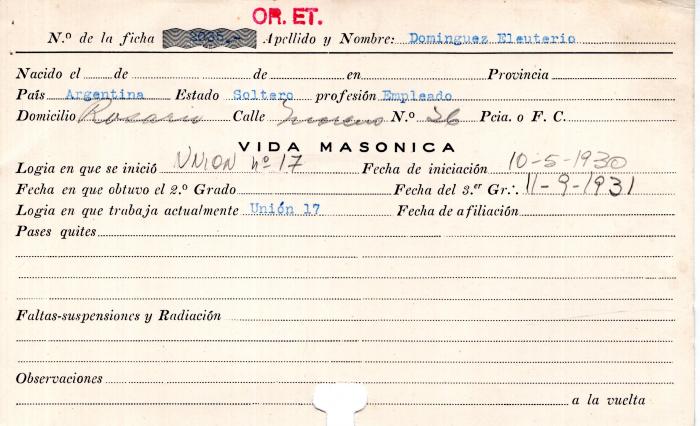 OR. ET.
N.º de la ficha Apellido y Nombre: Dominguez Eleuterio
Nacido el de de en Provincia
País Argentina Estado Soltero profesión Empleado
Domicilio Rosario Calle Moreno N.º 26 Pcia. o F. C.
VIDA MASONICA
Logia en que se inició UNION nº 17 Fecha de iniciación 10-5-1930
Fecha en que obtuvo el 2.º Grado Fecha del 3.er Gr∴ 11-9-1931
Logia en que trabaja actualmente Unión 17 Fecha de afiliación
Pases quites
Faltas-suspensiones y Radiación
Observaciones
a la vuelta